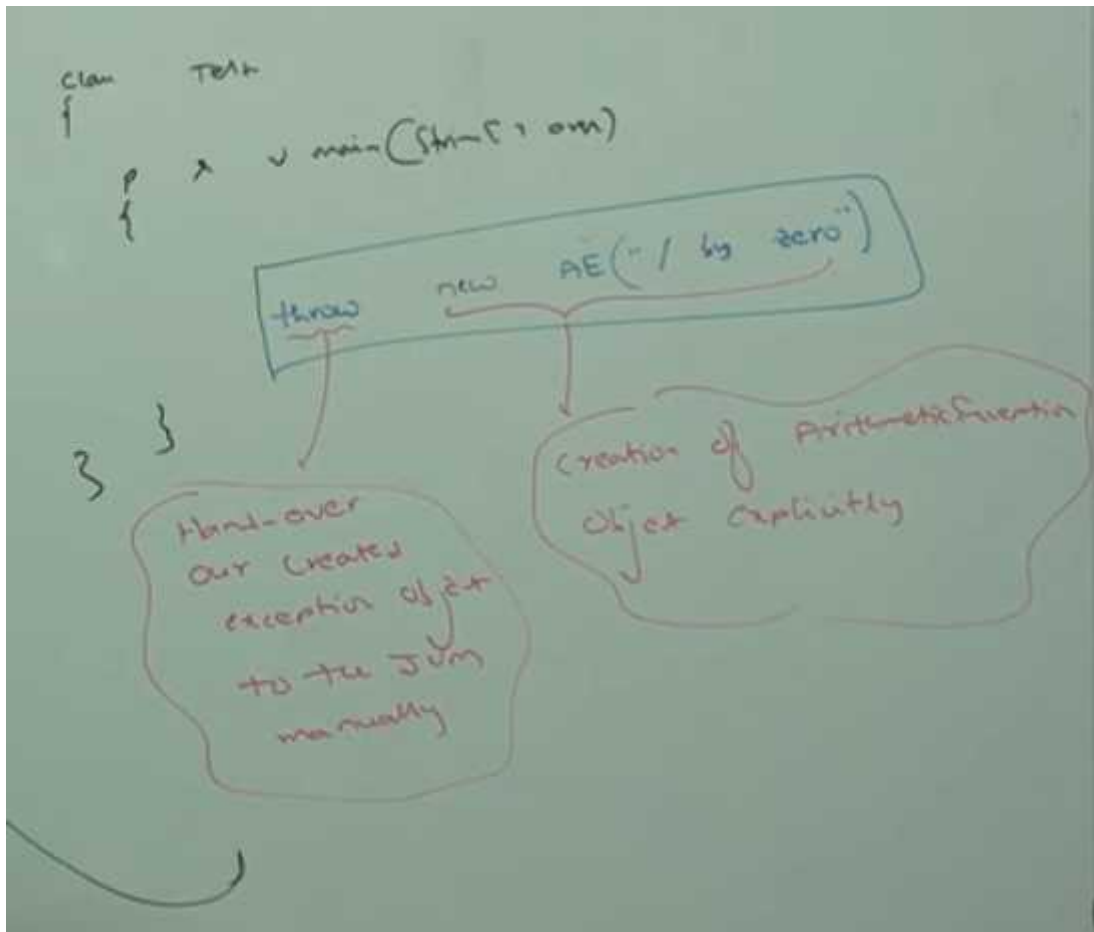 class Test
{
p s v main(String[] args)
{
throw new AE("/ by zero")
}
}
Hand-over
our created
exception object
to the JVM
manually
creation of ArithmeticException
object explicitly